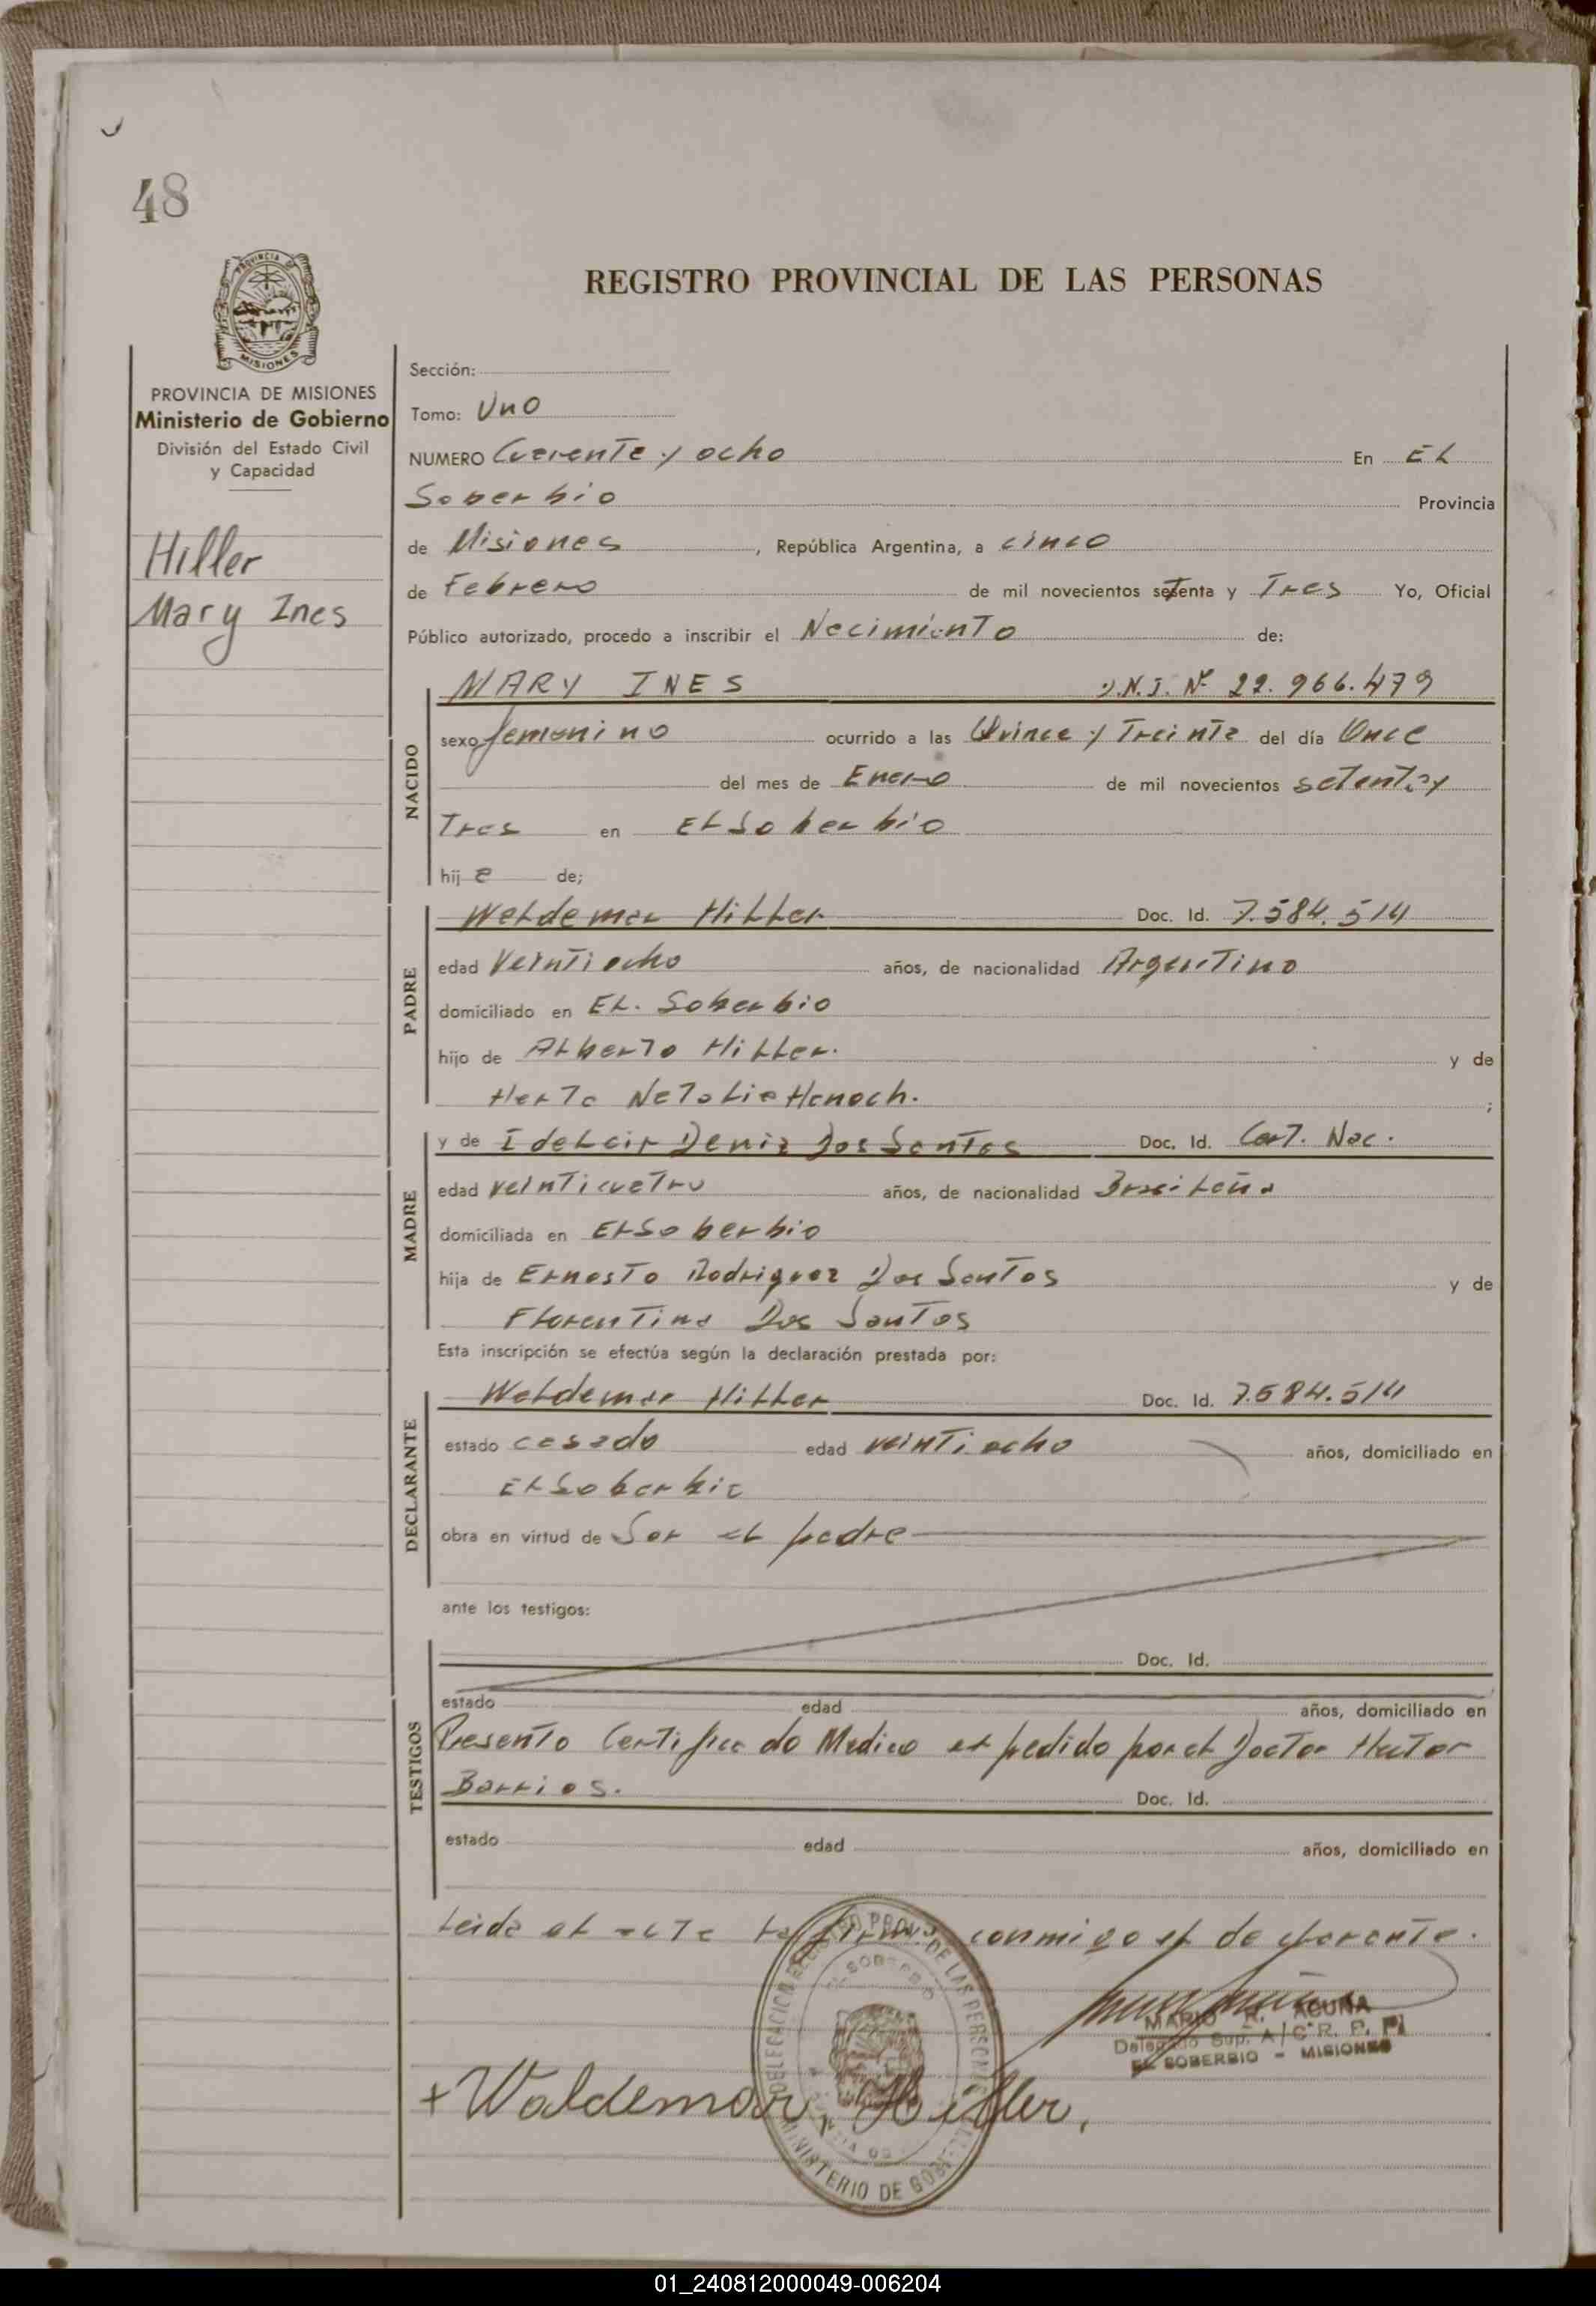 48
REGISTRO PROVINCIAL DE LAS PERSONAS
PROVINCIA DE MISIONES
Ministerio de Gobierno
División del Estado Civil
y Capacidad
Hiller
Mary Ines
Sección:
Tomo: Uno
NUMERO Cuarenta y ocho En El
Soberbio Provincia
de Misiones, República Argentina, a cinco
de Febrero de mil novecientos setenta y Tres Yo, Oficial
Público autorizado, procedo a inscribir el Nacimiento de:
NACIDO
MARY INES D.N.I. Nº 22.966.479
sexo femenino ocurrido a las Quince y Treinta del día Once
del mes de Enero de mil novecientos setenta y
Tres en El Soberbio
hij a de;
PADRE
Waldemar Hiller Doc. Id. 7.584.514
edad Veintiocho años, de nacionalidad Argentino
domiciliado en El. Soberbio
hijo de Alberto Hiller. y de
Herta Natalia Henoch. ;
MADRE
y de Idelcir Deniz Dos Santos Doc. Id. Cert. Nac.
edad veinticuatro años, de nacionalidad Brasileña
domiciliada en El Soberbio
hija de Ernesto Rodriguez Dos Santos y de
Florentina Dos Santos
Esta inscripción se efectúa según la declaración prestada por:
DECLARANTE
Waldemar Hiller Doc. Id. 7.584.514
estado casado edad veintiocho años, domiciliado en
El Soberbio
obra en virtud de Ser el padre
ante los testigos:
TESTIGOS
Doc. Id.
estado edad años, domiciliado en
Presento Certificado Medico expedido por el Doctor Hector
Barrios. Doc. Id.
estado edad años, domiciliado en
Leida el acta la firma conmigo el declarante.
MARIO A. ACUÑA
Delegado Sup. A/C R. P. P.
EL SOBERBIO - MISIONES
+ Waldemar, Hiller,
MINISTERIO DE GOBIERNO
01_240812000049-006204